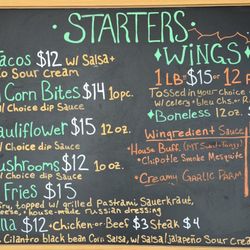 STARTERS
Tacos $12 w/ Salsa +
o Sour Cream
Corn Bites $14 10pc.
/ Choice dip Sauce
auliflower $15 12 oz.
/ Choice dip Sauce
ushrooms $12 10 oz.
/ Choice dip Sauce
Fries $15
ry, topped w/ grilled Pastrami Sauerkraut,
cheese, + house-made russian dressing
lla $12 + Chicken or Beef $3 Steak $4
Cilantro black bean Corn Salsa, w/ Salsa / jalapeño Sour cre
WINGS
1 LB $15 or 12 p
Tossed in your choice
w/ celery + bleu Chs. +
Boneless 12 oz. $
Wingredient Sauce
House Buff.
Chipotle Smoke Mesquite
Creamy Garlic Parm